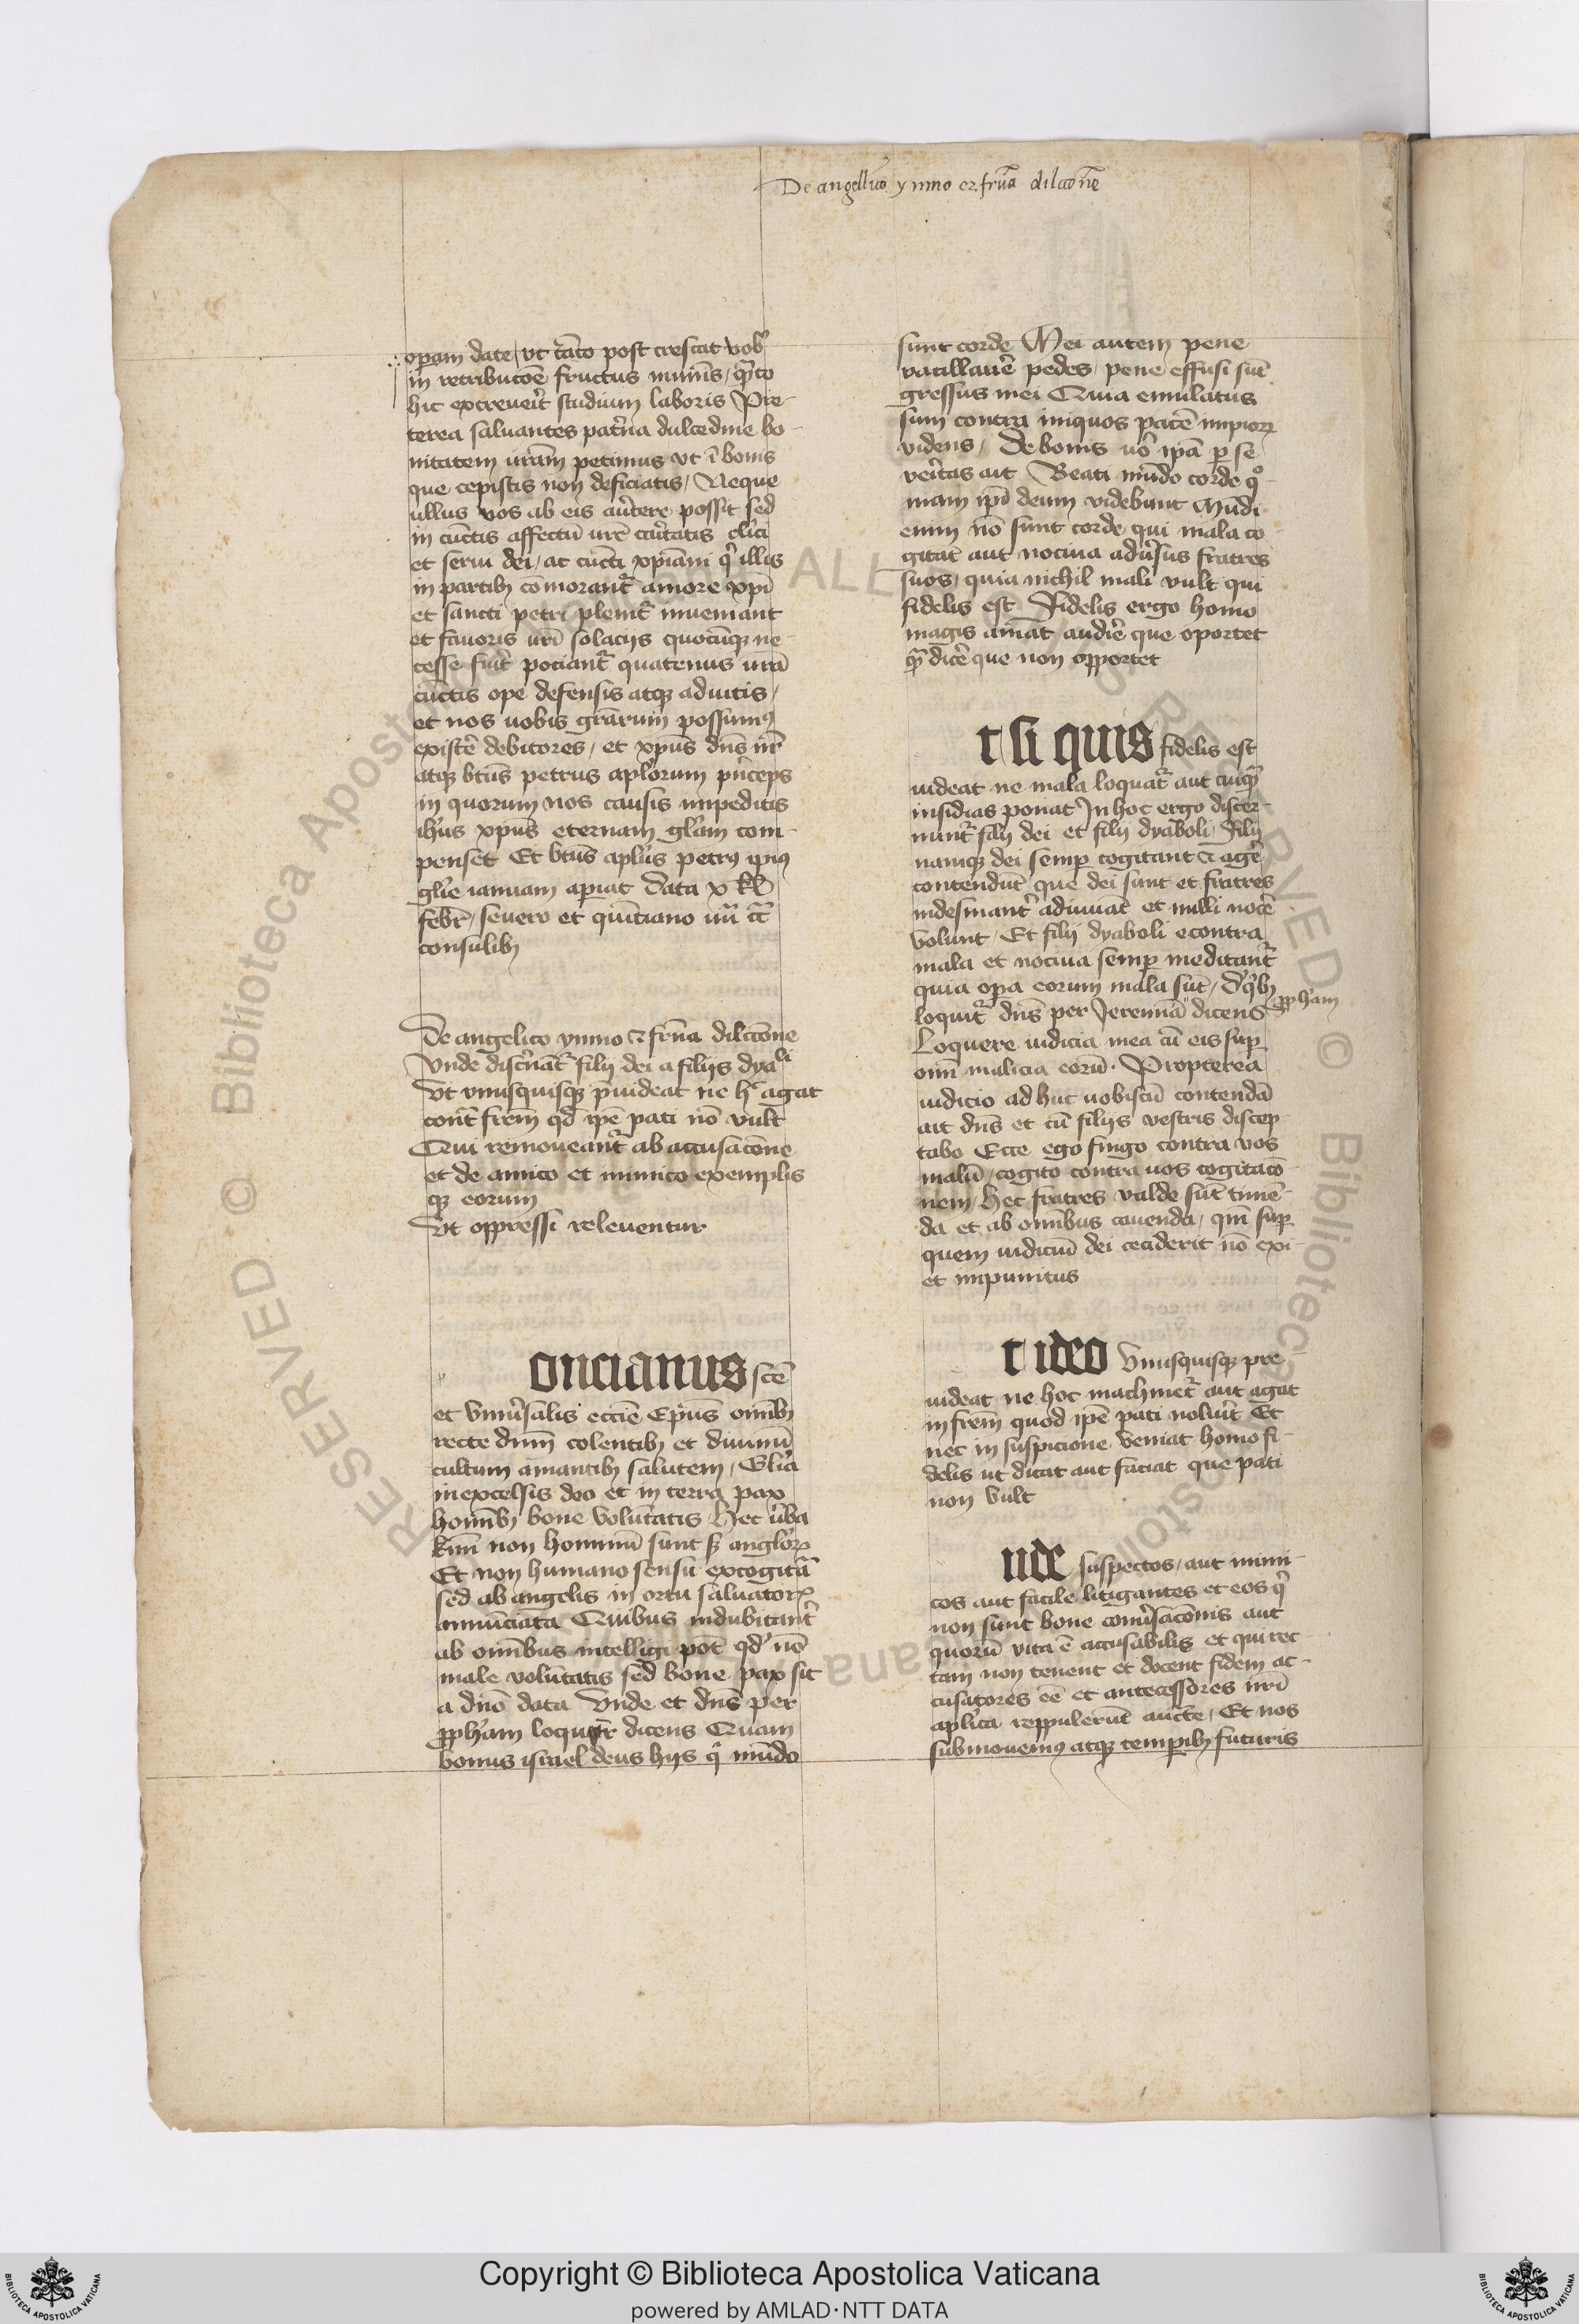 De angellico ymno et frn̄a dilcōne
opam date vt tāto post crescat vob̄
in retribucōe fructus mun̄is, qn̄to
hic excreuerit studium laboris Pre-
terea saluantes pat̄na dulcedine bo-
nitatem ur̄am petimus vt ī bonis
que cepistis non deficiatis, Neque
ullus vos ab eis au̓tere possit sed
in cūctis affectū urē cāritatis cl̓ici
et serui dei, ac cūcti xp̄iāni q̓ illis
in partibꝫ cōmorant̄ amore xp̄i
et sancti petri plenit̄ inueniant
et fauoris ur̄i solacijs quocūqꝫ ne-
cesse fuīt pociant̄ quatenus ur̄ā
cūctis ope defensis atqꝫ adiutis,
et nos uobis grārum possumꝰ
existē debitores, et xp̄us dn̄s nr̄
atqꝫ bt̄us petrus apl̓orum pn̓ceps
in quorum nos causis impeditis
ih̓us xp̄us eternam gl̓am com-
penset Et bt̄us apl̓us petrꝰ ipiꝰ
gl̓ie ianuam apiat Data x kl̓
febr̄, seuero et quīciano uū cc̄
consulibꝫ
De angelico ymno & frn̄a dilccōne
Vnde discn̄āt̄ filij dei a filijs dyali
Vt vnusquisqꝫ puideat ne hͨ agat
cont̄ frēm qd̄ ip̄e pati nō vult
Qui remoueant̄ ab accusacōne
et de amico et inimico exemplis
qꝫ eorum
Vt oppressi releuentur
oncianus scē
et vniu̓salis eccīe Ep̄us oīmbꝫ
recte dn̄m colentibꝫ et diuinū
cultum amantibꝫ salutem, Gl̓ia
in excelsis deo et in terra pax
homībꝫ bone volūtatis Hec u̓ba
km̄i non hominū sunt sꝫ anglo̓ꝝ
Et non humano sensu excogitā
sed ab angelis in ortu saluatorꝭ
annūciata Quibus indubitant̄
ab omībus intelligi pōt qd̓ nō
male volūtatis sed bone pax sit
a dn̄o data Vnde et dn̄s per
pph̓am loquit̄r dicens Quam
bonus israel deus hijs q̓ mūdo
sunt corde Mei autem pene
vacillauēr̄ pedes, pene effusi sūt
gressus mei Quia emulatus
sum contra iniquos pacē impioꝝ
videns, De bonis uo̓ ipā p se
veritas ait Beati mūdo corde qͦ
niam ip̄i deum videbunt Mūdi
enim nō sunt corde qui mala co-
gitāt aut nociua adu̓sus fratres
suos, quia nichil mali vult qui
fidelis est Fidelis ergo homo
magis amat audiē que oportet
qm̄ dicē que non opportet
t si quis fidelis est
uideat ne mala loquat̄ aut cuiqꝫ
insidias ponat In hoc ergo discer-
nunt̄ filij dei et filij dyaboli, Filij
namqꝫ dei semp cogitant & agē
contendūt que dei sunt et fratres
indesinant̄ adiuuāt et nulli nocē
volunt, Et filij dyaboli econtra
mala et nociua semp meditant̄
quia opa eorum mala sūt, d̓ q̓bꝫ
loquit̄ dn̄s per Jeremiā dicens pph̓am
Loquere iudicia mea cū eis sup
oīm malicia eorū. Propterea
iudicio adhuc uobiscū contendā
ait dn̄s et cū filijs vestris discep
tabo Ecce ego fingo contra vos
malū, cogito contra uos cogitacō-
nem, Hec fratres valde sūt timē-
da et ab omībus cauenda, qm̄ sup
quem iudiciū dei ceciderit nō exi-
et impunitus
t ideo Vnusquisqꝫ pre-
uideat ne hoc machinet̄ aut agat
in frēm quod ip̄e pati noluīt Et
nec in suspicione veniat homo fi-
delis ut dicat aut faciat que pati
non vult
nde suspectos, aut inimi-
cos aut facile litigantes et eos q̓
non sunt bone conu̓sacōnis aut
quorū vita ē accusabilis et qui rec-
tam non tenent et docent fidem ac-
cusatores eē et antecessores nr̄i
apl̓ica reppulerūt aucte, Et nos
submouemꝰ atqꝫ temporibꝫ futuris
Copyright © Biblioteca Apostolica Vaticana
powered by AMLAD·NTT DATA